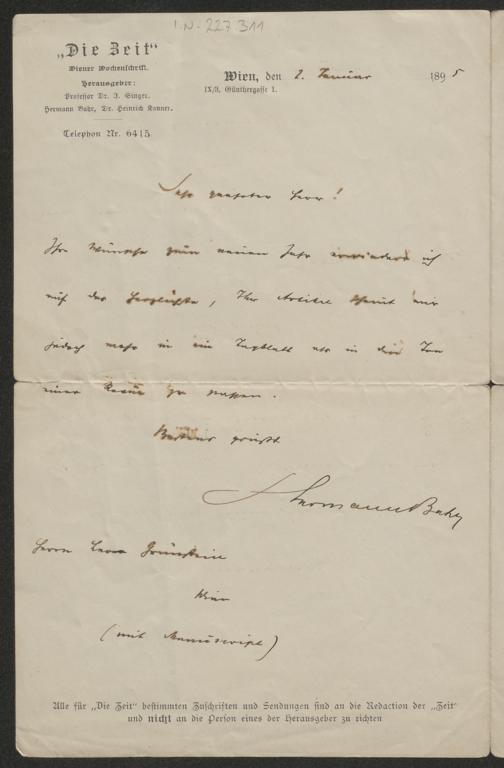 I.N- 227311
„Die Zeit“
Wiener Wochenschrift.
Herausgeber:
Professor Dr. I. Singer,
Hermann Bahr, Dr. Heinrich Kanner.
Telephon Nr. 6415.
Wien, den 2. Januar 1895
IX/3, Günthergasse 1.
Sehr geehrter Herr!
Ihre Wünsche zum neuen Jahr erwiedere ich
auf das Herzlichste, Ihr Artikel scheint mir
jedoch mehr in ein Tagblatt als in den Ton
einer Revue zu passen.
Bestens grüßt
Hermann Bahr
Herrn Grünstein
Wien
(mit Manuscript)
Alle für „Die Zeit“ bestimmten Zuschriften und Sendungen sind an die Redaction der „Zeit“
und nicht an die Person eines der Herausgeber zu richten